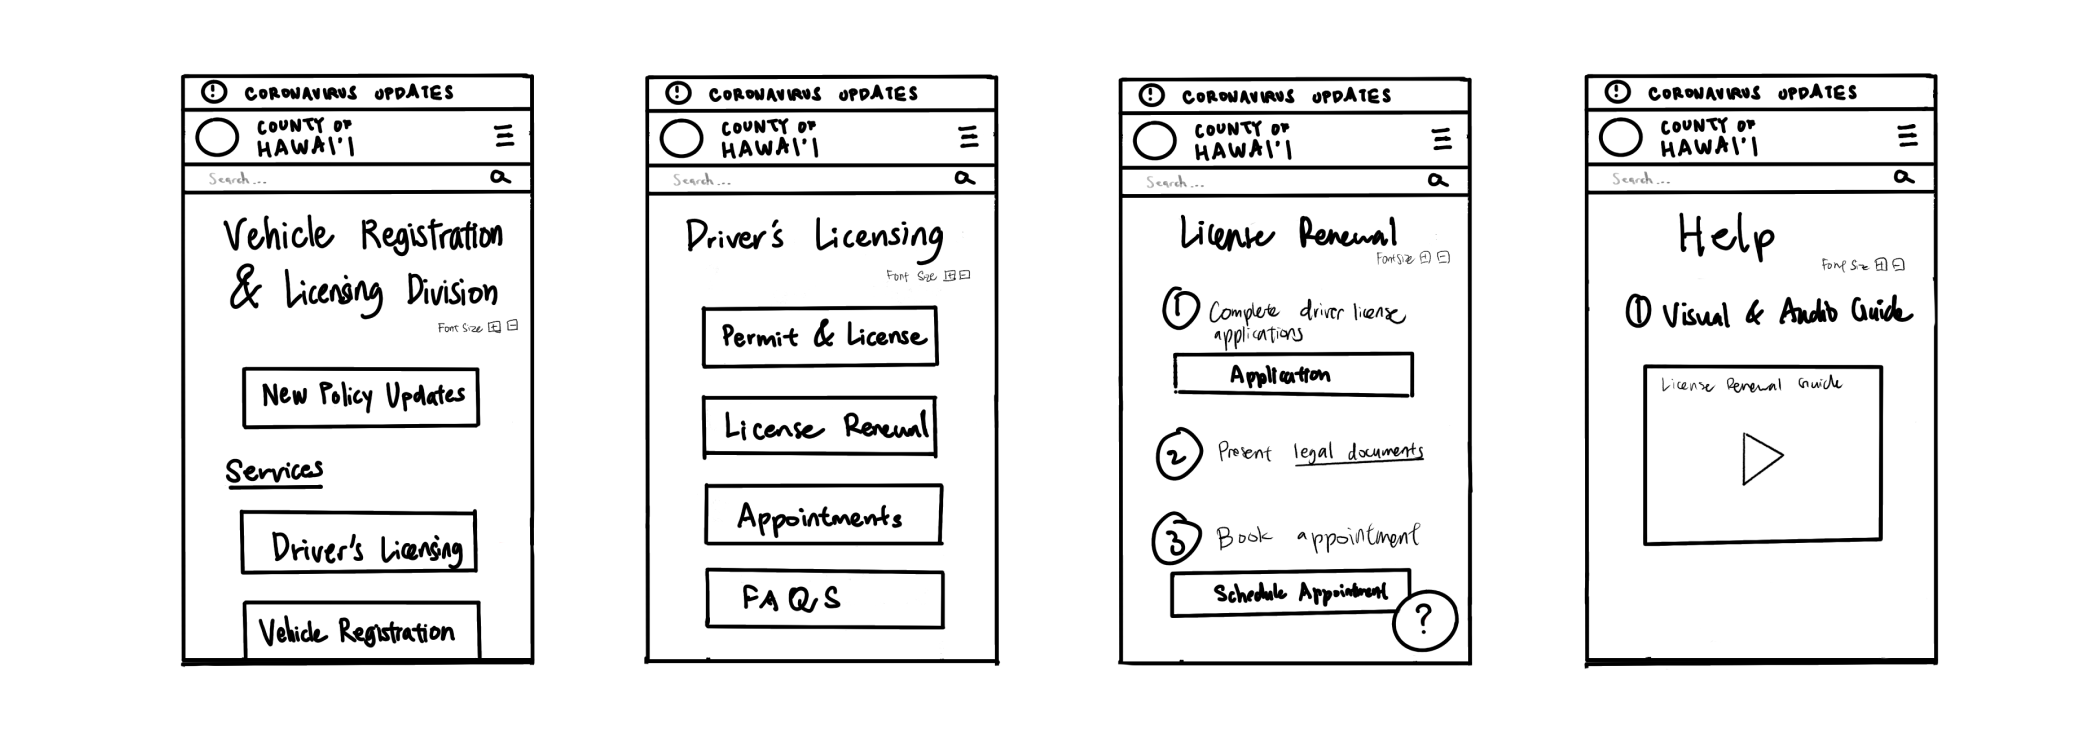 CORONAVIRUS UPDATES
COUNTY OF
HAWAI'I
Search...
Vehicle Registration
& Licensing Division
Font Size + -
New Policy Updates
Services
Driver's Licensing
Vehicle Registration
CORONAVIRUS UPDATES
COUNTY OF
HAWAI'I
Search...
Driver's Licensing
Font Size + -
Permit & License
License Renewal
Appointments
FAQS
CORONAVIRUS UPDATES
COUNTY OF
HAWAI'I
Search...
License Renewal
Font Size + -
1 Complete driver license
applications
Application
2 Present legal documents
3 Book appointment
Schedule Appointment
?
CORONAVIRUS UPDATES
COUNTY OF
HAWAI'I
Search...
Help
Font Size + -
1 Visual & Audio Guide
License Renewal Guide